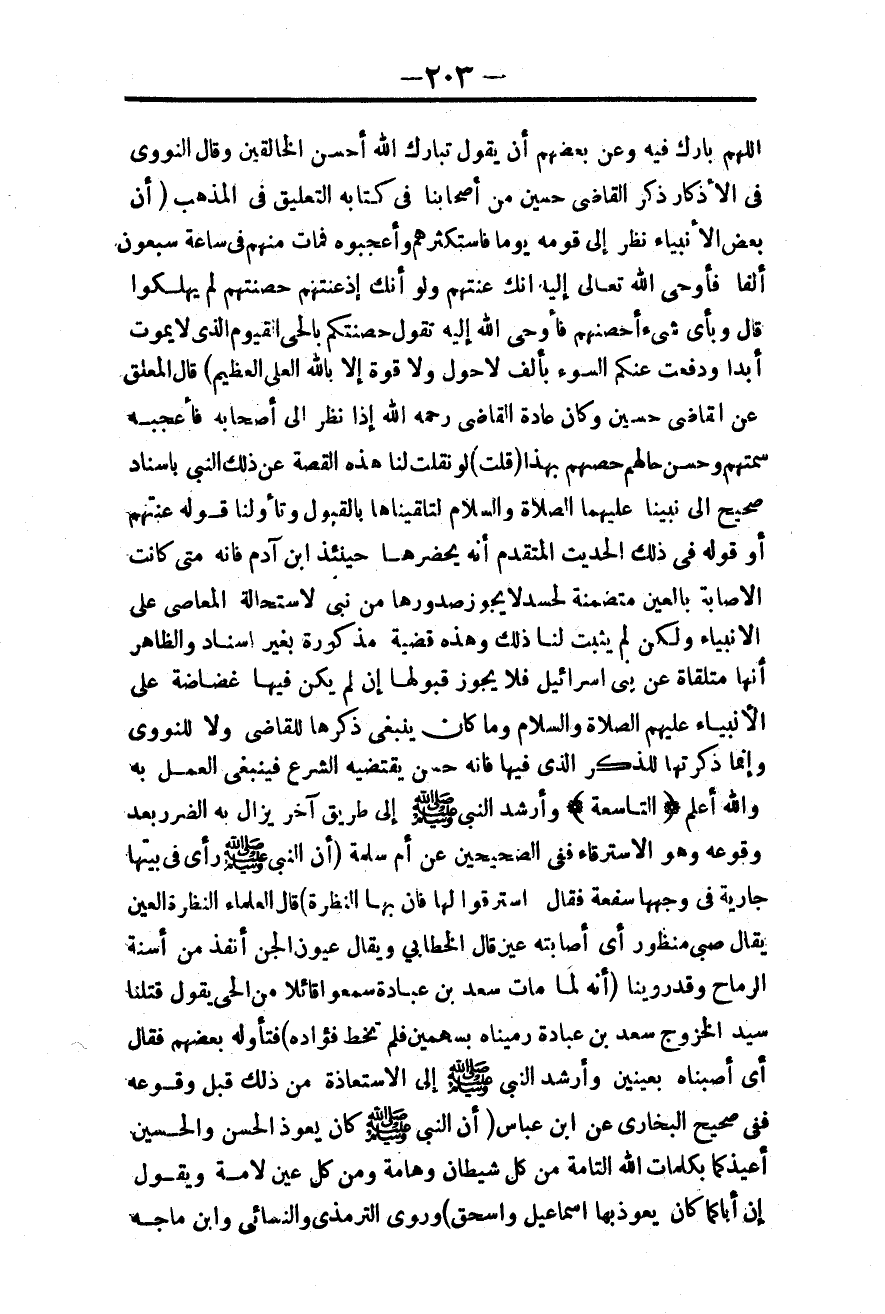 — ٢٠٣ —
اللهم بارك فيه وعن بعضهم أن يقول تبارك الله أحسن الخالقين وقال النووى
فى الأذكار ذكر القاضى حسين من أصحابنا فى كتابه التعليق فى المذهب ( أن
بعض الأنبياء نظر إلى قومه يوما فاستكثرهم وأعجبوه فمات منهم فى ساعة سبعون
ألفا فأوحى الله تعالى إليه انك عنتهم ولو أنك إذعنتهم حصنتهم لم يهلكوا
قال وبأى شىء أحصنهم فأوحى الله إليه تقول حصنتكم بالحى القيوم الذى لا يموت
أبدا ودفعت عنكم السوء بألف لاحول ولا قوة إلا بالله العلى العظيم) قال المعلق
عن القاضى حسين وكان عادة القاضى رحمه الله إذا نظر الى أصحابه فأعجبه
سمتهم وحسن حالهم حصنهم بهذا (قلت) لو نقلت لنا هذه القصة عن ذلك النبى باسناد
صحيح الى نبينا عليهما الصلاة والسلام لتلقيناها بالقبول وتأولنا قوله عنتهم
أو قوله فى ذلك الحديث المتقدم أنه يحضرها حينئذ ابن آدم فانه متى كانت
الاصابة بالعين متضمنة لحسد لا يجوز صدورها من نبى لاستحالة المعاصى على
الانبياء ولكن لم يثبت لنا ذلك وهذه قضية مذكورة بغير اسناد والظاهر
أنها متلقاة عن بنى اسرائيل فلا يجوز قبولها إن لم يكن فيها غضاضة على
الأنبياء عليهم الصلاة والسلام وما كان ينبغى ذكرها للقاضى ولا للنووى
وإنما ذكرتها للذكر الذى فيها فانه حسن يقتضيه الشرع فينبغى العمل به
والله أعلم ﴿ التاسعة ﴾ وأرشد النبى ﷺ إلى طريق آخر يزال به الضرر بعد
وقوعه وهو الاسترقاء ففى الصحيحين عن أم سلمة (أن النبى ﷺ رأى فى بيتها
جارية فى وجهها سفعة فقال استرقوا لها فان بها النظرة) قال العلماء النظرة العين
يقال صبى منظور أى أصابته عين قال الخطابي ويقال عيون الجن أنفذ من أسنة
الرماح وقدروينا (أنه لما مات سعد بن عبادة سمعوا قائلا من الحى يقول قتلنا
سيد الخزرج سعد بن عبادة رميناه بسهمين فلم تخط فؤاده) فتأوله بعضهم فقال
أى أصبناه بعينين وأرشد النبى ﷺ إلى الاستعاذة من ذلك قبل وقوعه
ففى صحيح البخارى عن ابن عباس ( أن النبى ﷺ كان يعوذ الحسن والحسين
أعيذكما بكلمات الله التامة من كل شيطان وهامة ومن كل عين لامة ويقول
إن أباكما كان يعوذ بها اسماعيل واسحق) وروى الترمذى والنسائى وابن ماجه